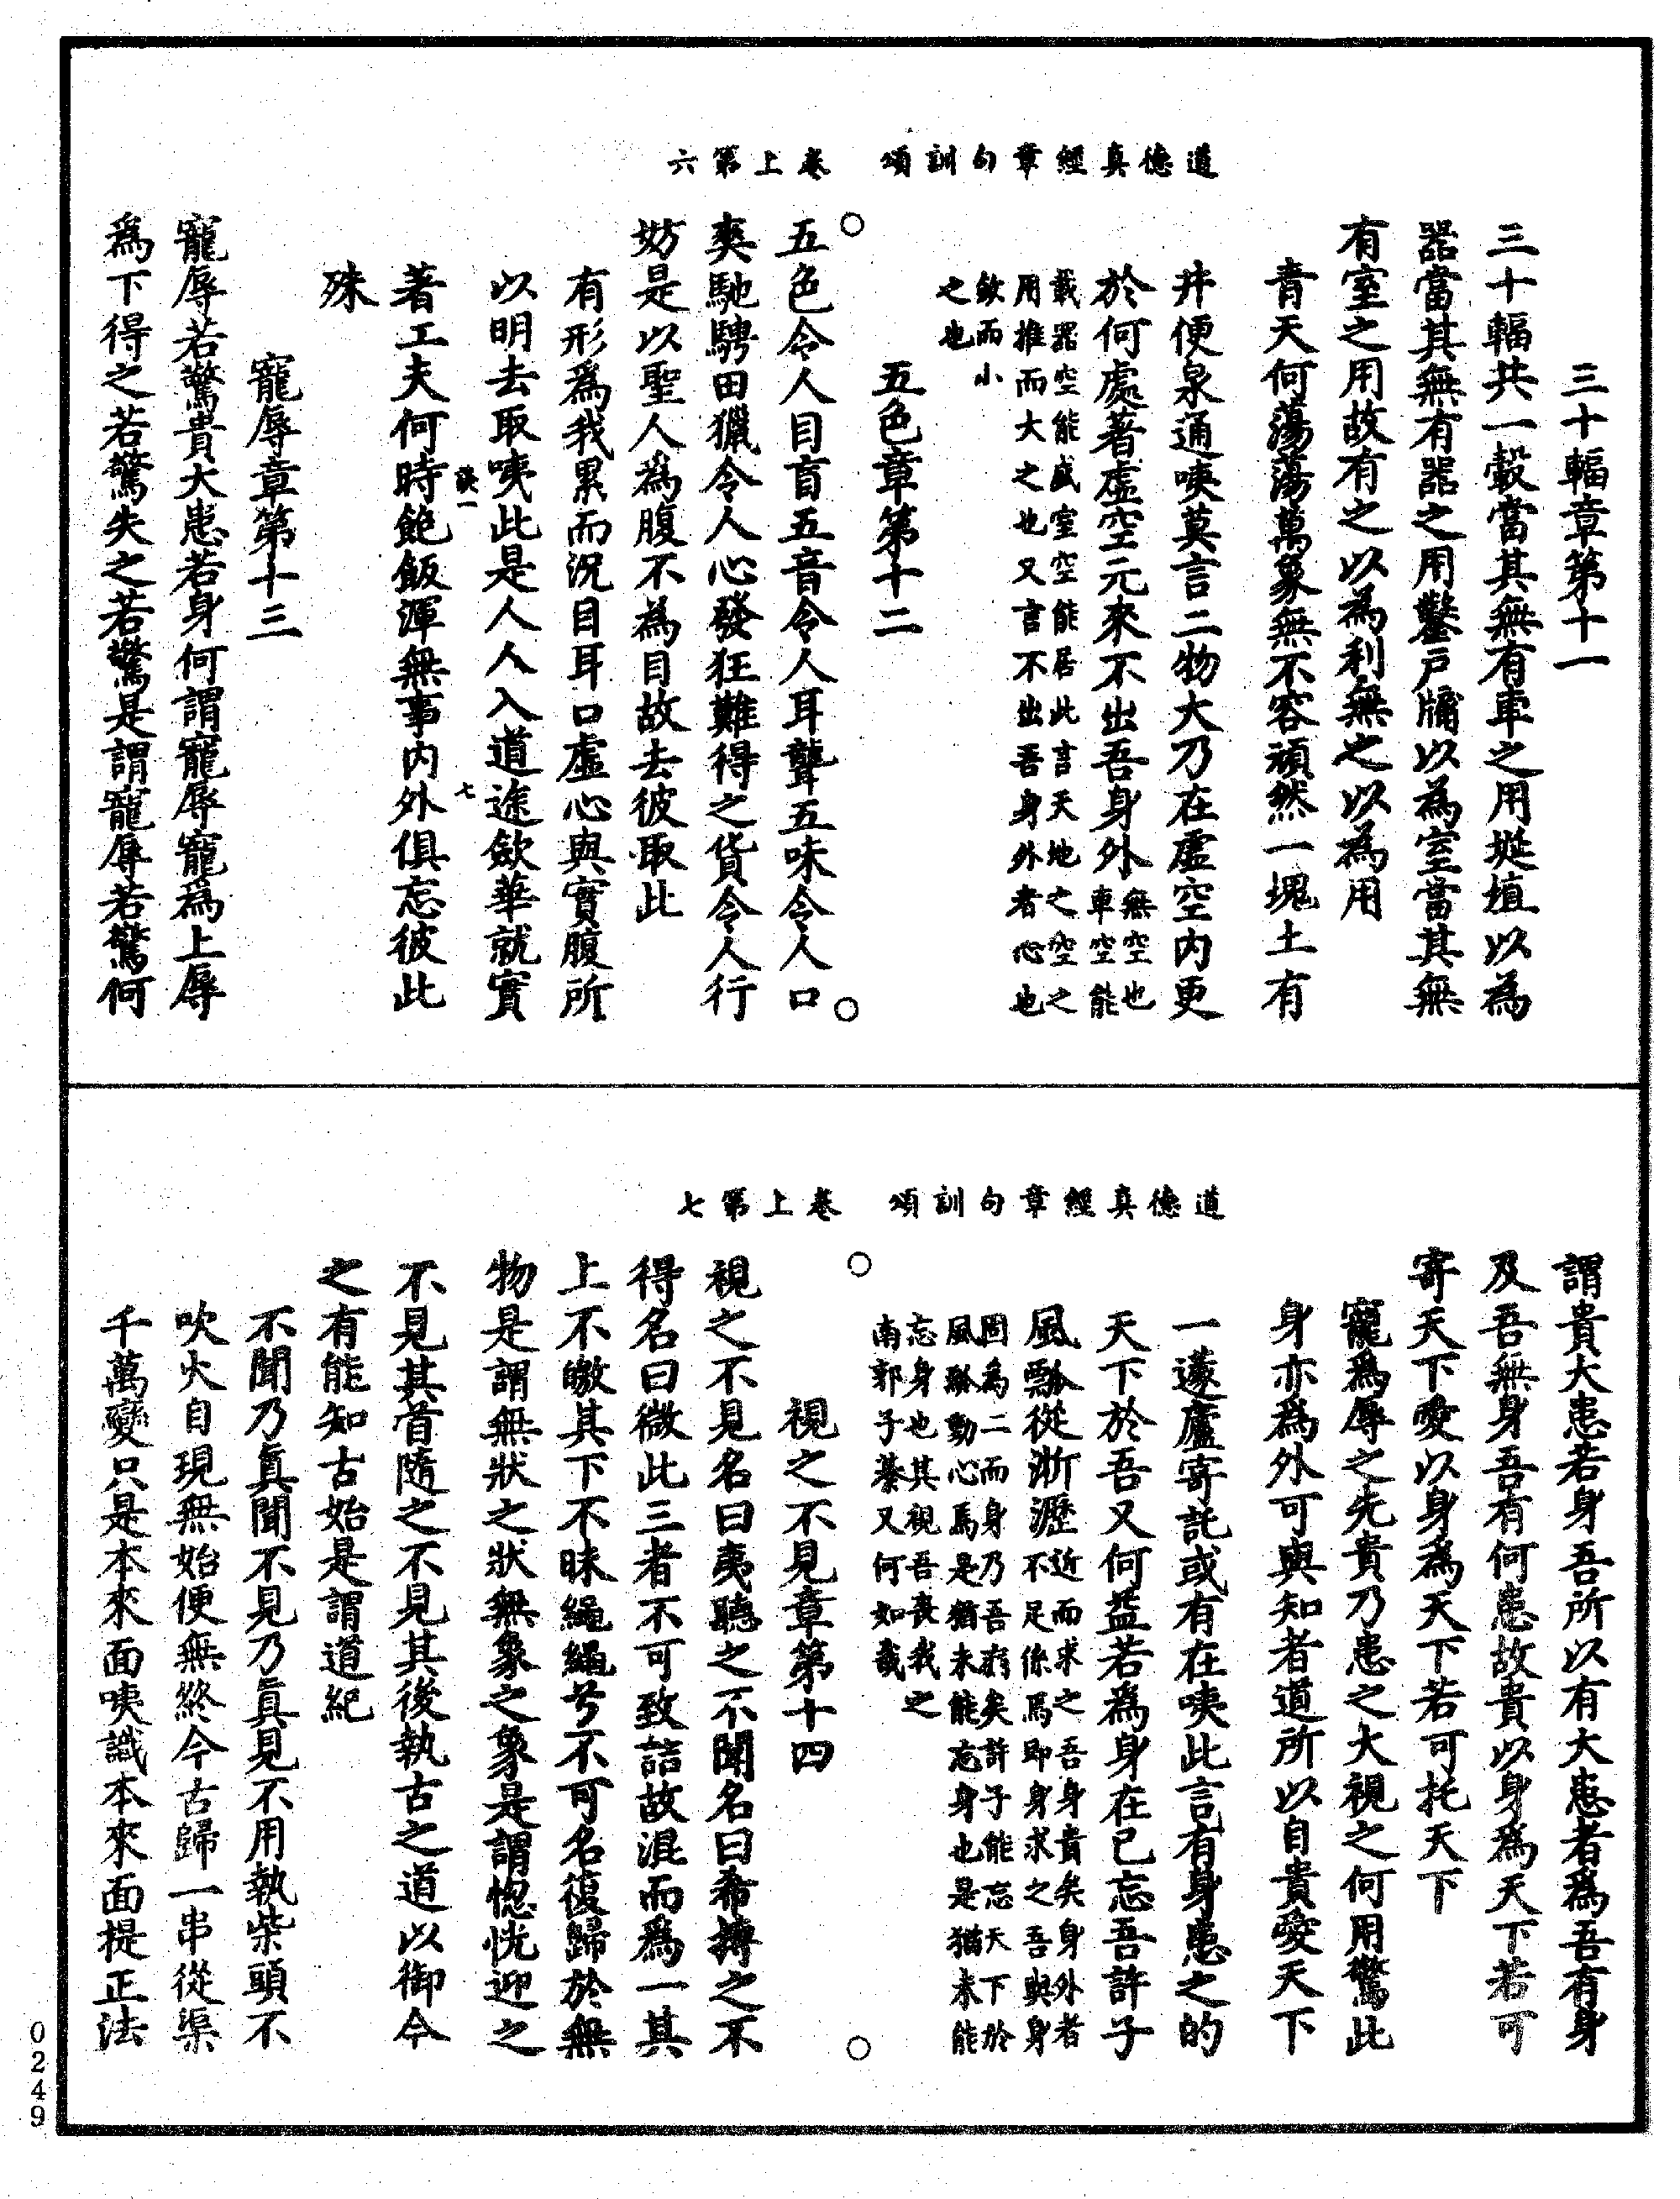 道德真經章句訓頌　卷上第六
三十輻章第十一
三十輻共一轂當其無有車之用埏埴以為
器當其無有器之用鑿戶牖以為室當其無
有室之用故有之以為利無之以為用
青天何蕩蕩萬象無不容頑然一塊土有
井便泉通咦莫言二物大乃在虛空內更
於何處著虛空元來不出吾身外無空也
車空能
載器空能盛室空能居此言天地之空之
用推而大之也又言不出吾身外者心也
斂而小
之也
五色章第十二
五色令人目盲五音令人耳聾五味令人口
爽馳騁田獵令人心發狂難得之貨令人行
妨是以聖人為腹不為目故去彼取此
有形為我累而況目耳口虛心與實腹所
以明去取咦此是人人入道途斂華就實
談一
七
著工夫何時飽飯渾無事內外俱忘彼此
殊
寵辱章第十三
寵辱若驚貴大患若身何謂寵辱寵爲上辱
爲下得之若驚失之若驚是謂寵辱若驚何
道德真經章句訓頌　卷上第七
謂貴大患若身吾所以有大患者爲吾有身
及吾無身吾有何患故貴以身爲天下若可
寄天下愛以身爲天下若可托天下
寵爲辱之先貴乃患之大視之何用驚此
身亦爲外可與知者道所以自貴愛天下
一蘧廬寄託或有在咦此言有身患之的
天下於吾又何益若爲身在已忘吾許子
風瓢從淅瀝近而求之吾身貴矣身外者
不足係焉即身求之吾與身
固為二而身乃吾有矣許子能忘天下於
風瓢動心焉是猶未能忘身也是猶未能
忘身也其視吾喪我之
南郭子綦又何如哉
視之不見章第十四
視之不見名曰夷聽之不聞名曰希搏之不
得名曰微此三者不可致詰故混而爲一其
上不皦其下不昧繩繩兮不可名復歸於無
物是謂無狀之狀無象之象是謂惚恍迎之
不見其首隨之不見其後執古之道以御今
之有能知古始是謂道紀
不聞乃真聞不見乃真見不用執柴頭不
吹火自現無始便無終今古歸一串從渠
千萬變只是本來面咦識本來面提正法
0249